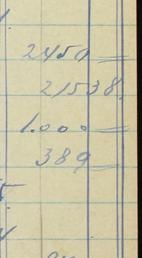 2450 =
21538.
1.000 =
389 =